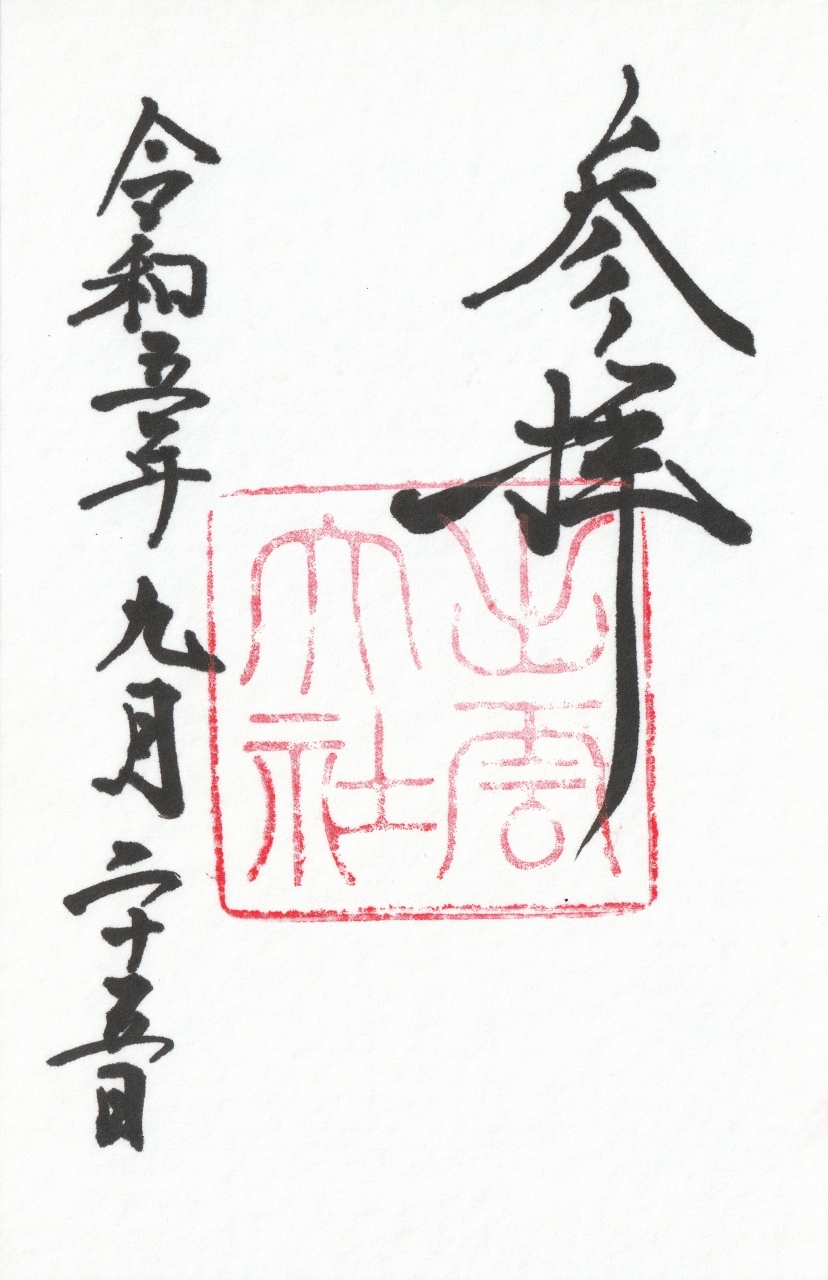 参拝
出雲
大社
令和五年九月二十五日